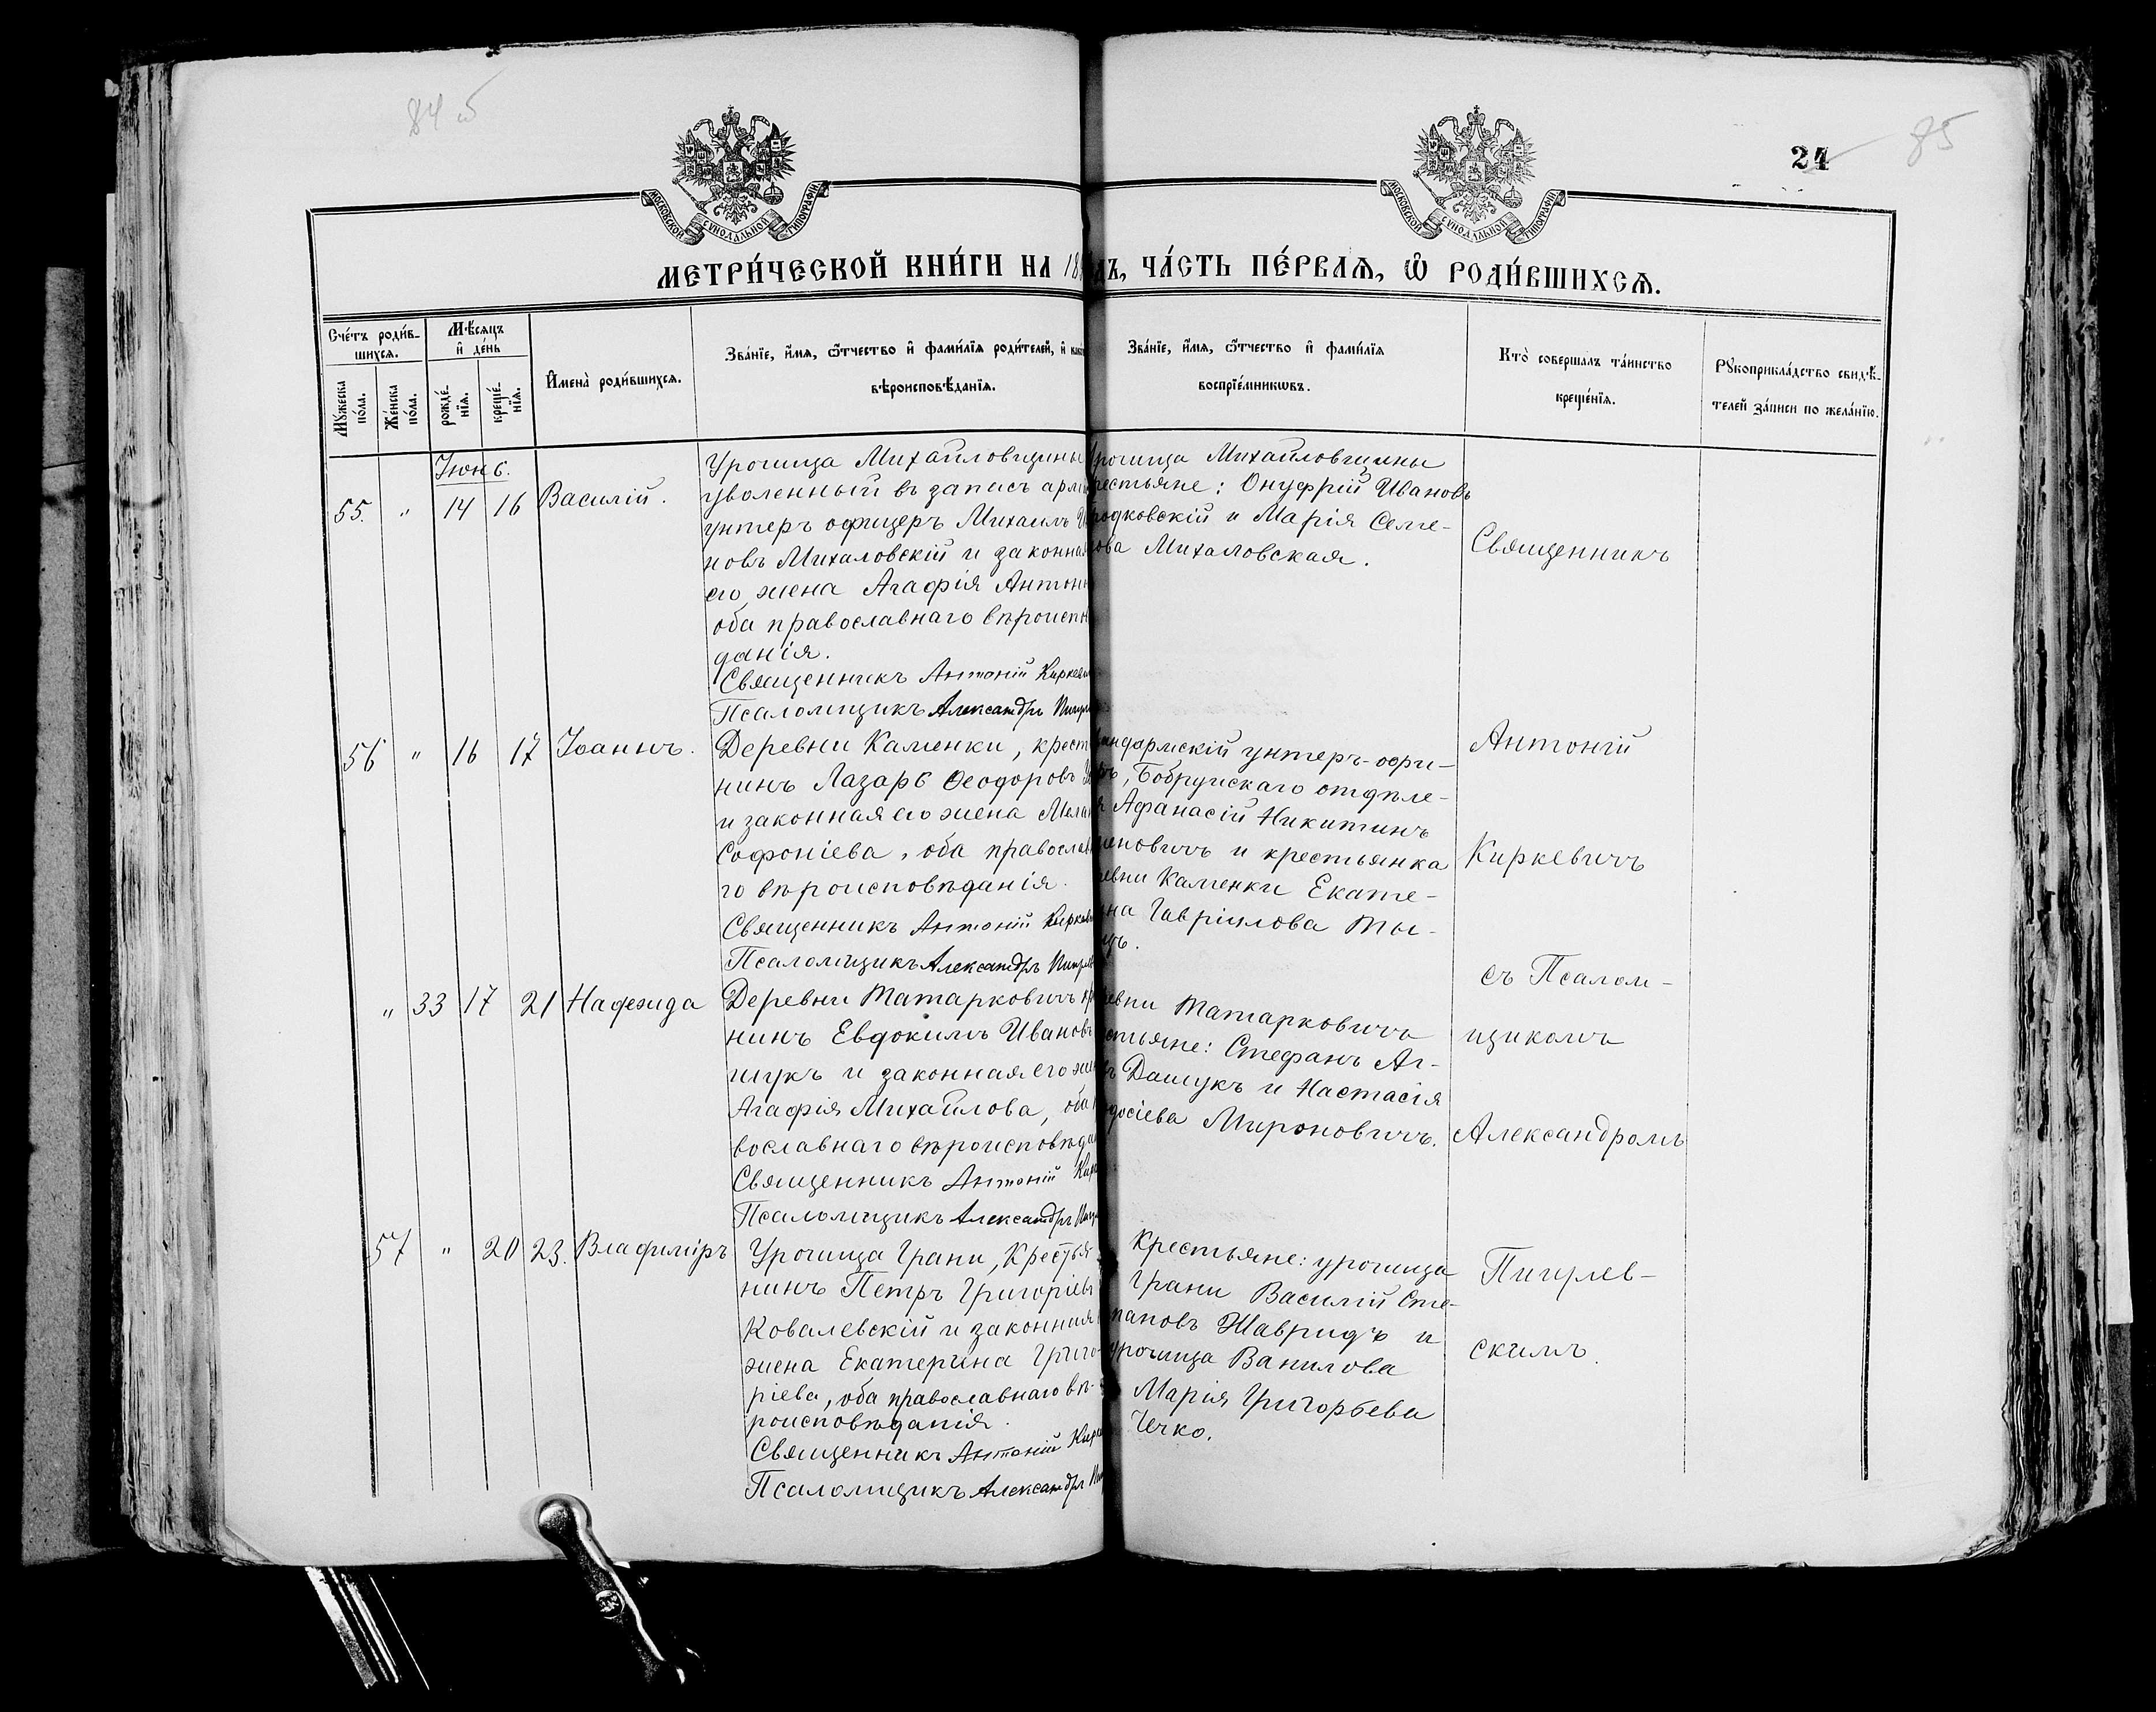 84 об
85
24
МОСКОВСКОЙ СѴНОДАЛЬНОЙ ТИПОГРАФІИ
МОСКОВСКОЙ СѴНОДАЛЬНОЙ ТИПОГРАФІИ
МЕТРИ́ЧЕСКОЙ КНИ́ГИ НА 18
ДЪ, ЧА́СТЬ ПЕ́РВАѦ, Ѿ РОДИ́ВШИХСѦ.
Сче́тъ роди́в-
шихсѧ.
Мꙋ́жеска по́ла.
Же́нска по́ла.
Мѣ́сѧцъ
и҆ де́нь
рожде́-
нїѧ.
креще́-
нїѧ.
И҆мена̀ роди́вшихсѧ.
Зва́нїе, и҆́мѧ, ѻ҆́тчество и҆ фамилїѧ роди́телей, и҆ како
вѣроисповѣ́данїѧ.
Зва́нїе, и҆́мѧ, ѻ҆́тчество и҆ фами́лїѧ
воспрїе́мникѡвъ.
Кто̀ соверша́лъ та́инство
креще́нїѧ.
Рꙋкоприкла́дство свидѣ́-
телей за́писи по жела́нїю.
Іюнь.
55. " 14 16 Василій.
Урочища Михайловщины
уволенный въ запасъ арм
унтеръ офицеръ Михаилъ И
новъ Михаловскій и законная
его жена Агафія Антон
оба православнаго вѣроиспо
данія.
Священникъ Антоній Киркев
Псаломщикъ Александръ Пигул
рочища Михайловщины
рестьяне: Онуфрій Ивановъ
родковскій и Марія Семе-
нова Михаловская.
56 " 16 17 Іоаннъ.
Деревни Каменки, крест
нинъ Лазарь Ѳеодоровъ
и законная его жена Мела
Софоніева, оба православ
го вѣроисповѣданія.
Священникъ Антоній Киркев
Псаломщикъ Александръ Пигулев
андармскій унтеръ-офи-
ръ, Бобруйскаго отдѣле-
я Афанасій Никитинъ
еновичъ и крестьянка
евни Каменки Екате-
на Гавріилова Ты-
цъ.
" 33 17 21 Надежда
Деревни Татарковичъ кр
нинъ Евдокимъ Ивановъ
шукъ и законная его жен
Агафія Михайлова, оба
вославнаго вѣроисповѣда
Священникъ Антоній Кирк
Псаломщикъ Александръ Пигу
евни Татарковичъ
стьяне: Стефанъ Аг-
ъ Дашукъ и Настасія
досіева Мироновичъ.
57 " 20 23. Владиміръ
Урочища Грани, Крестья
нинъ Петръ Григоріевъ
Ковалевскій и законная
жена Екатерина Григо-
ріева, оба православнаго вѣ-
роисповѣданія.
Священникъ Антоній Кирк
Псаломщикъ Александръ Пи
Крестьяне: урочища
Грани Василій Сте-
пановъ Шавридъ и
урочища Ванилова
Марія Григорьева
Чечко.
Священникъ
Антоній
Киркевичъ
съ Псалом-
щикомъ
Александромъ
Пигулев-
скимъ.